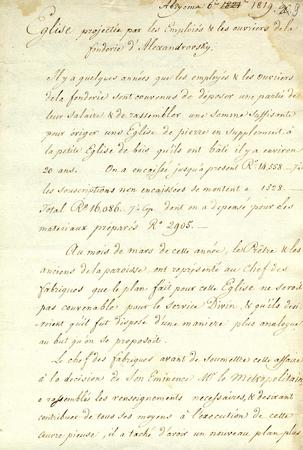 1819.
Eglise projettée par les Employés & les ouvriers de la
fonderie d'Alexandrovsky.
Il y a quelques années que les employés & les ouvriers
de la fonderie sont convenus de deposer une partie de
leur salaire & de rassembler une somme suffisante
pour eriger une Eglise de pierre en supplement à
la petite Eglise de bois qu'ils ont bâti il y a environ
20 ans. On a encaissée jusqu'à present Rs 14,558
les souscriptions non encaissées se montent à 1528
Total Rs 16,086 dont on a depensé pour des
materiaux preparés Rs 2905.
Au mois de mars de cette année, le Prêtre & les
anciens de la paroisse ont representé au Chef des
fabriques que le plan fait pour cette Eglise ne seroit
pas convenable pour le Service Divin & qu'ils desi-
roient qu'il fut disposé d'une maniere plus analogue
au but qu'on se proposait.
Le chef des fabriques avant de soumettre cette affaire
à la decision de Son Eminence Mgr le Metropolitain
a rassemblé les renseignements necessaires, & desirant
contribuer de tous ses moyens à l'execution de cette
œuvre pieuse, il a taché d'avoir un nouveau plan plus